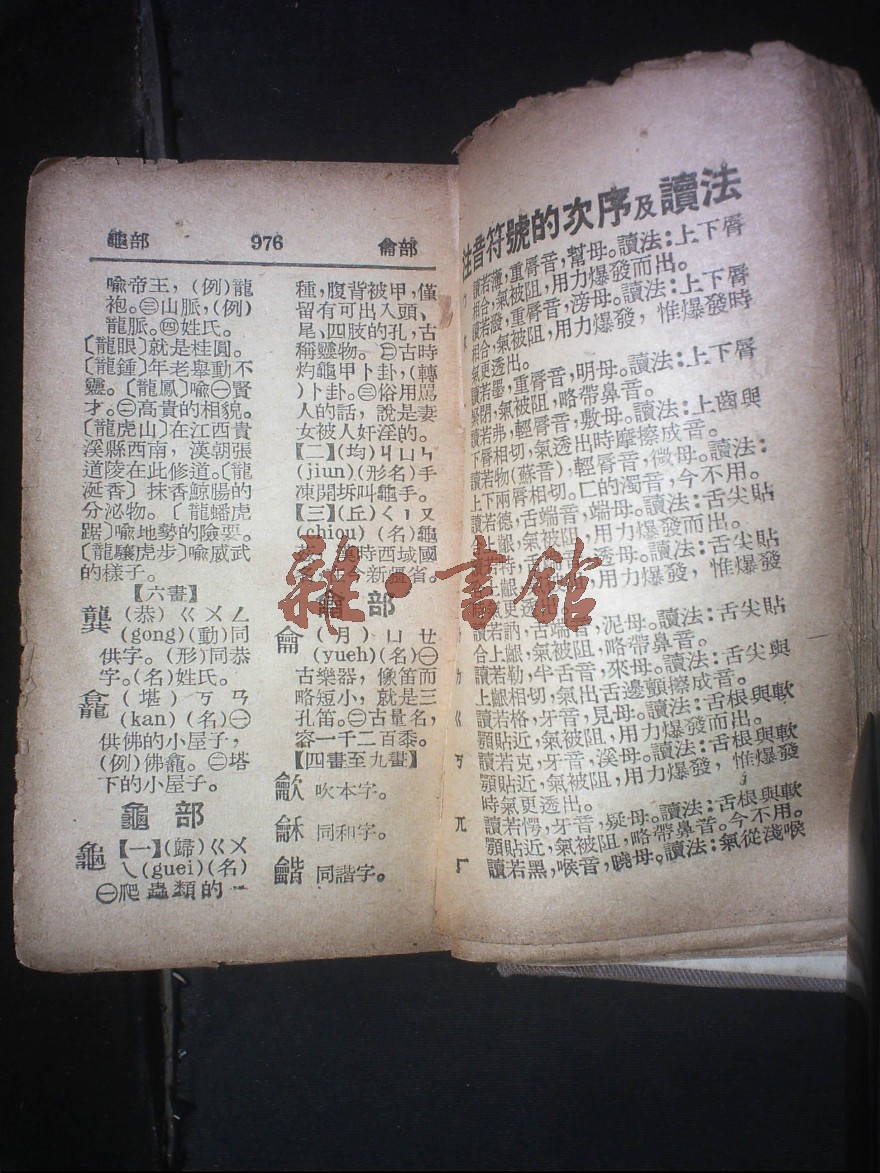 龜部 976 龠部
喩帝王，(例)龍
袍。㊂山脈，(例)
龍脈。㊃姓氏。
〔龍眼〕就是桂圓。
〔龍鍾〕年老舉動不
靈。〔龍鳳〕喩㊀賢
才。㊁高貴的相貌。
〔龍虎山〕在江西貴
溪縣西南，漢朝張
道陵在此修道。〔龍
涎香〕抹香鯨腸的
分泌物。〔龍蟠虎
踞〕喩地勢的險要。
〔龍驤虎步〕喩威武
的樣子。
【六畫】
龔 (恭)ㄍㄨㄥ
(gong)(動)同
供字。(形)同恭
字。(名)姓氏。
龕 (堪)ㄎㄢ
(kan)(名)㊀
供佛的小屋子，
(例)佛龕。㊁塔
下的小屋子。
龜部
龜 【一】(歸)ㄍㄨ
ㄟ(guei)(名)
㊀爬蟲類的一
種，腹背被甲，僅
留有可出入頭、
尾、四肢的孔，古
稱靈物。㊁古時
灼龜甲卜卦，(轉
)卜卦。㊂俗用罵
人的話，說是妻
女被人奸淫的。
【二】(均)ㄐㄩㄣ
(jiun)(形名)手
凍開坼叫龜手。
【三】(丘)ㄑㄧㄡ
(chiou)(名)龜
時西域國
新疆省。
龠部
龠 (月)ㄩㄝ
(yueh)(名)㊀
古樂器，像笛而
略短小，就是三
孔笛。㊁古量名，
容一千二百黍。
【四畫至九畫】
龡 吹本字。
龢 同和字。
龤 同諧字。
雜·書館
注音符號的次序及讀法
讀若薄，重脣音，幫母。讀法：上下脣
相合，氣被阻，用力爆發而出。
讀若潑，重脣音，滂母。讀法：上下脣
相合，氣被阻，用力爆發，惟爆發時
氣更透出。
讀若墨，重脣音，明母。讀法：上下脣
緊閉，氣被阻，略帶鼻音。
讀若弗，輕脣音，敷母。讀法：上齒與
下脣相切，氣透出時摩擦成音。
讀若物(蘇音)，輕脣音，微母。讀法：
上下兩脣相切。ㄈ的濁音，今不用。
讀若德，舌端音，端母。讀法：舌尖貼
上齦，氣被阻，用力爆發而出。
讀若特，舌端音，透母。讀法：舌尖貼
上齦，氣被阻，用力爆發，惟爆發
時氣更透出。
讀若訥，舌端音，泥母。讀法：舌尖貼
合上齦，氣被阻，略帶鼻音。
ㄌ 讀若勒，半舌音，來母。讀法：舌尖與
上齦相切，氣出舌邊顫擦成音。
ㄍ 讀若格，牙音，見母。讀法：舌根與軟
顎貼近，氣被阻，用力爆發而出。
ㄎ 讀若克，牙音，溪母。讀法：舌根與軟
顎貼近，氣被阻，用力爆發，惟爆發
時氣更透出。
ㄫ 讀若愕，牙音，疑母。讀法：舌根與軟
顎貼近，氣被阻，略帶鼻音。今不用。
ㄏ 讀若黑，喉音，曉母。讀法：氣從淺喉